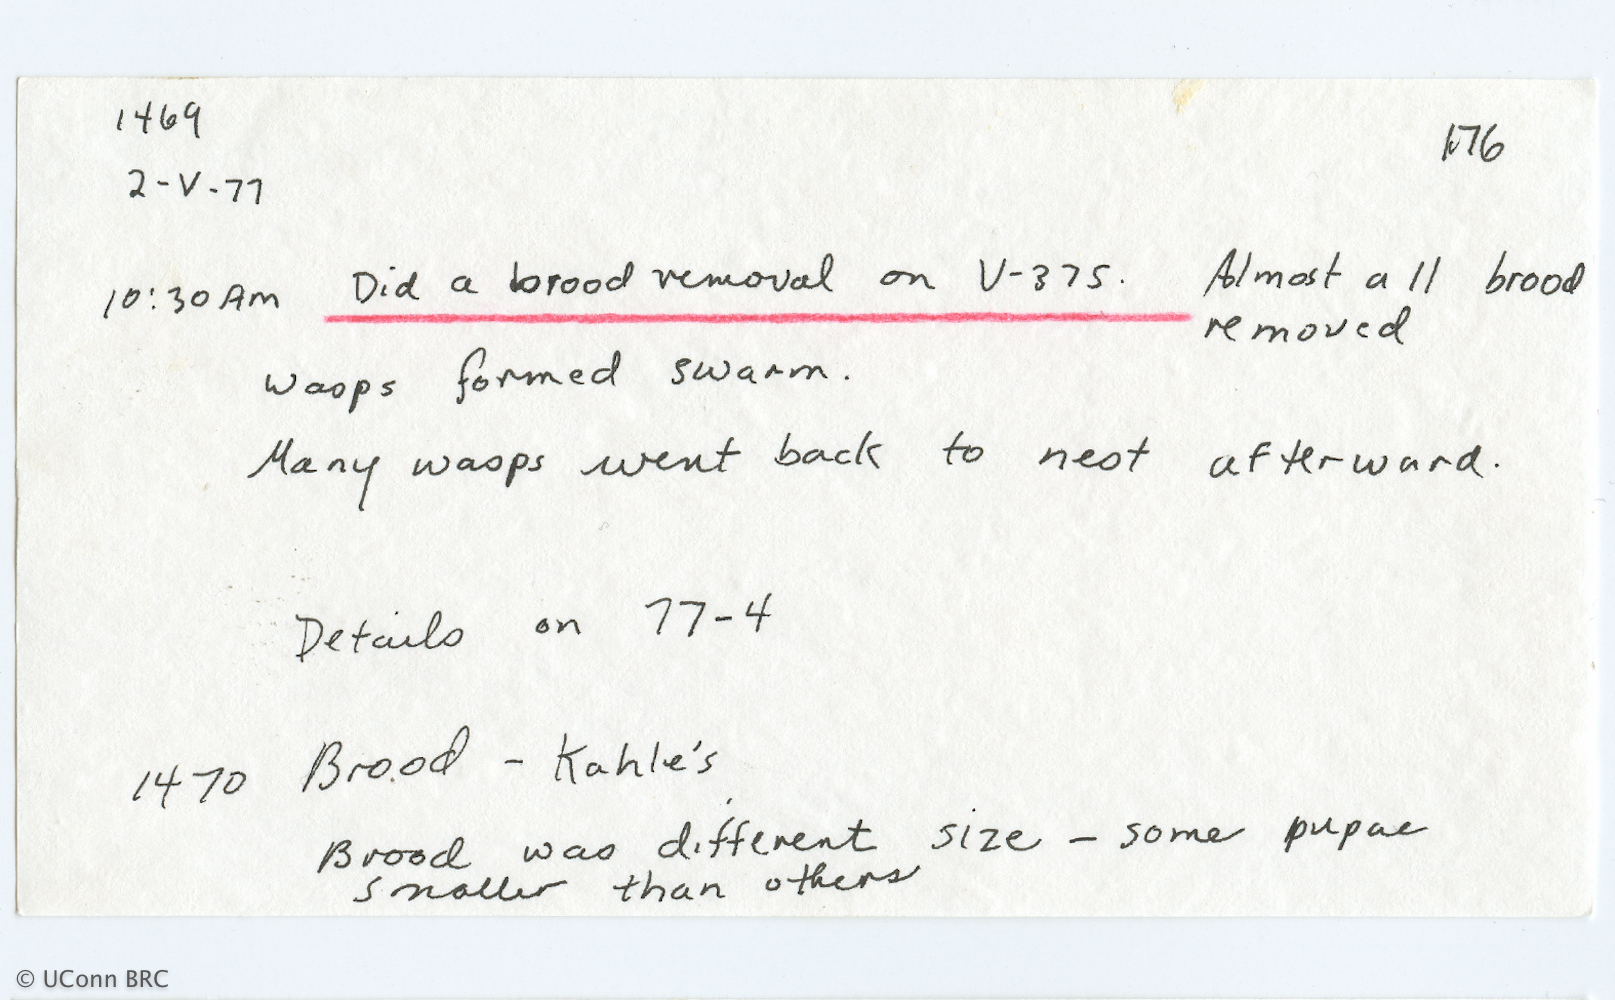 1469
176
2-V-77
10:30 Am Did a brood removal on V-375. Almost all brood
removed
wasps formed swarm.
Many wasps went back to nest afterward.
Details on 77-4
1470 Brood - Kahle's
Brood was different size - some pupae
smaller than others
© UConn BRC